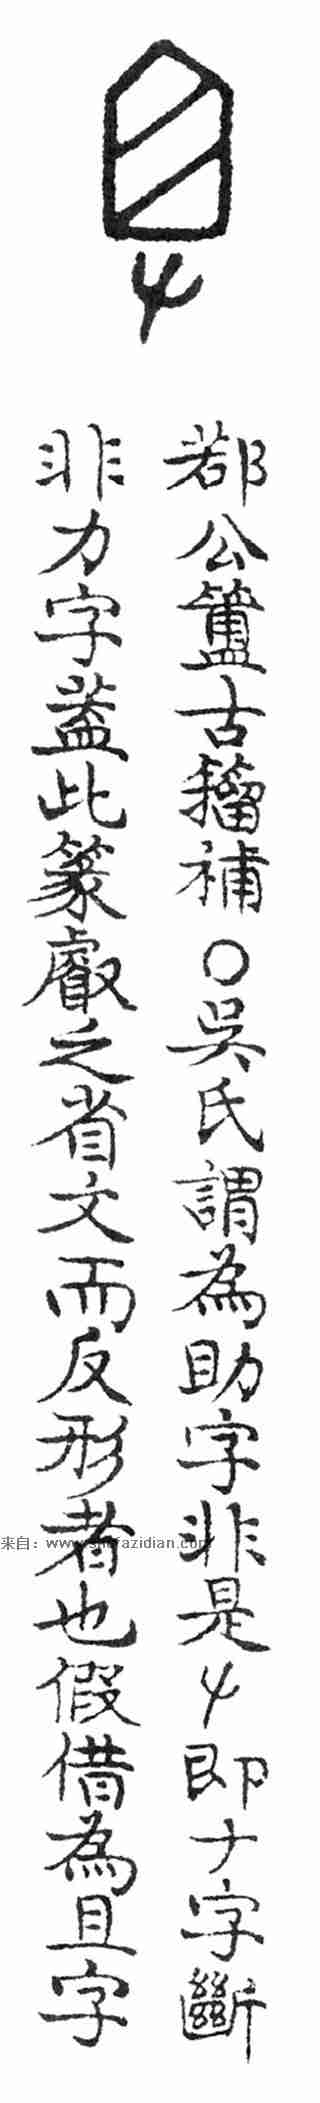 鄀公簠古籀補○吳氏謂為助字非是𠂇即ナ字斷
非力字蓋此篆𠭯之省文而反形者也假借為且字
来自：www.shufazidian.com